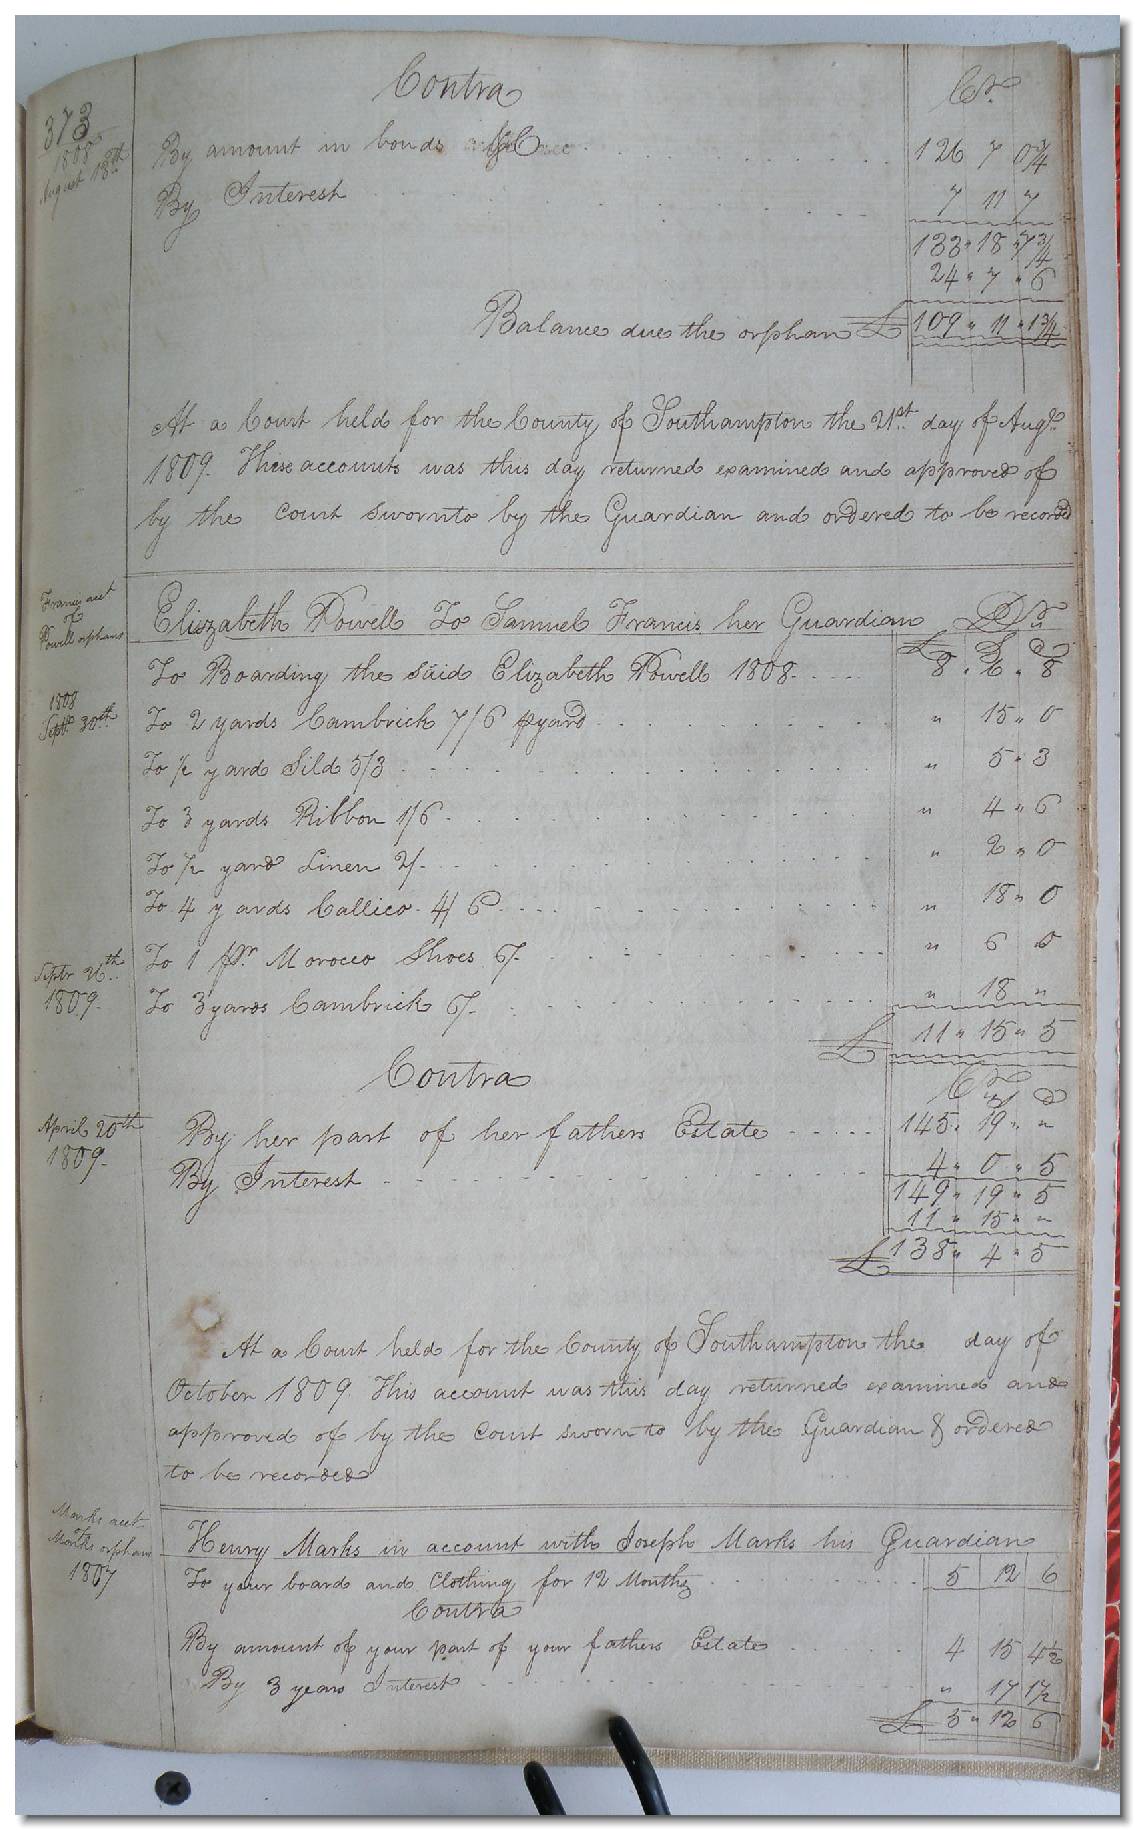 373
Contra Cr.
1808
August 18th
By amount in bonds &c 126 7 0¾
By Interest 7 11 7
133 " 18 " 7¾
24 " 7 " 6
Balance due the orphan £ 109 " 11 " 1¾
At a Court held for the County of Southampton the 21st. day of Augt.
1809. These accounts was this day returned examined and approved of
by the Court sworn to by the Guardian and ordered to be recorded
Francis acct
of
Powell orphans
Elizabeth Powell To Samuel Francis her Guardian Dr
£ S D
To Boarding the said Elizabeth Powell 1808 8 . 6 . 8
1808
Sept. 30th
To 2 yards Cambrick 7/6 pyard " 15 " 0
To ½ yard Sild 5/3 " 5 " 3
To 3 yards Ribbon 1/6 " 4 " 6
To ½ yard Linen 2/ " 2 " 0
To 4 yards Callico 4/6 " 18 " 0
To 1 pr. Morocco Shoes 6/ " 6 0
Septr 26th
1809
To 3 yards Cambrick 6/ " 18 "
£ 11 " 15 " 5
Contra Cr
S D
April 20th
1809
By her part of her fathers Estate 145 " 19 " "
By Interest 4 " 0 " 5
149 " 19 " 5
11 " 15 " "
£ 138 " 4 " 5
At a Court held for the County of Southampton the day of
October 1809. This account was this day returned examined and
approved of by the Court sworn to by the Guardian & ordered
to be recorded
Marks acct
of
Marks orphans
1807
Henry Marks in account with Joseph Marks his Guardian
To your board and Clothing for 12 Months 5 12 6
Contra
By amount of your part of your fathers Estate 4 15 4½
By 3 years Interest " 17 1½
£ 5 " 12 6